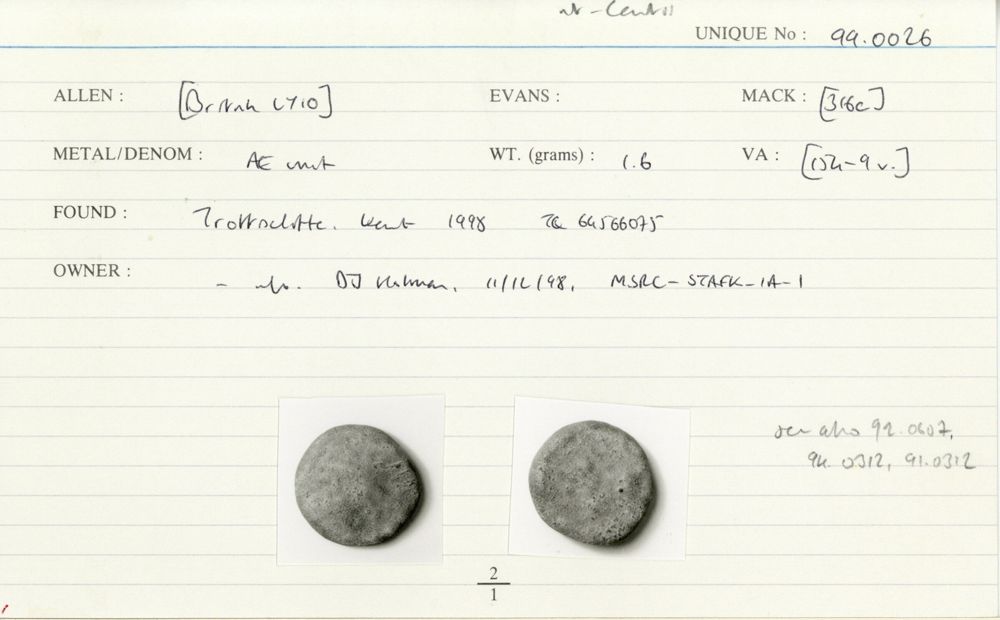 UNIQUE No : 99.0026
ALLEN : [British LY10] EVANS : MACK : [316c]
METAL/DENOM : AE unit WT. (grams) : 1.6 VA : [154-9 v.]
FOUND : Trottiscliffe. Kent 1998 TQ 64566075
OWNER : - info. DJ 11/12/98, MSRC-STAFK-IA-1
see also 92.0607,
94.0312, 91.0312
2
1